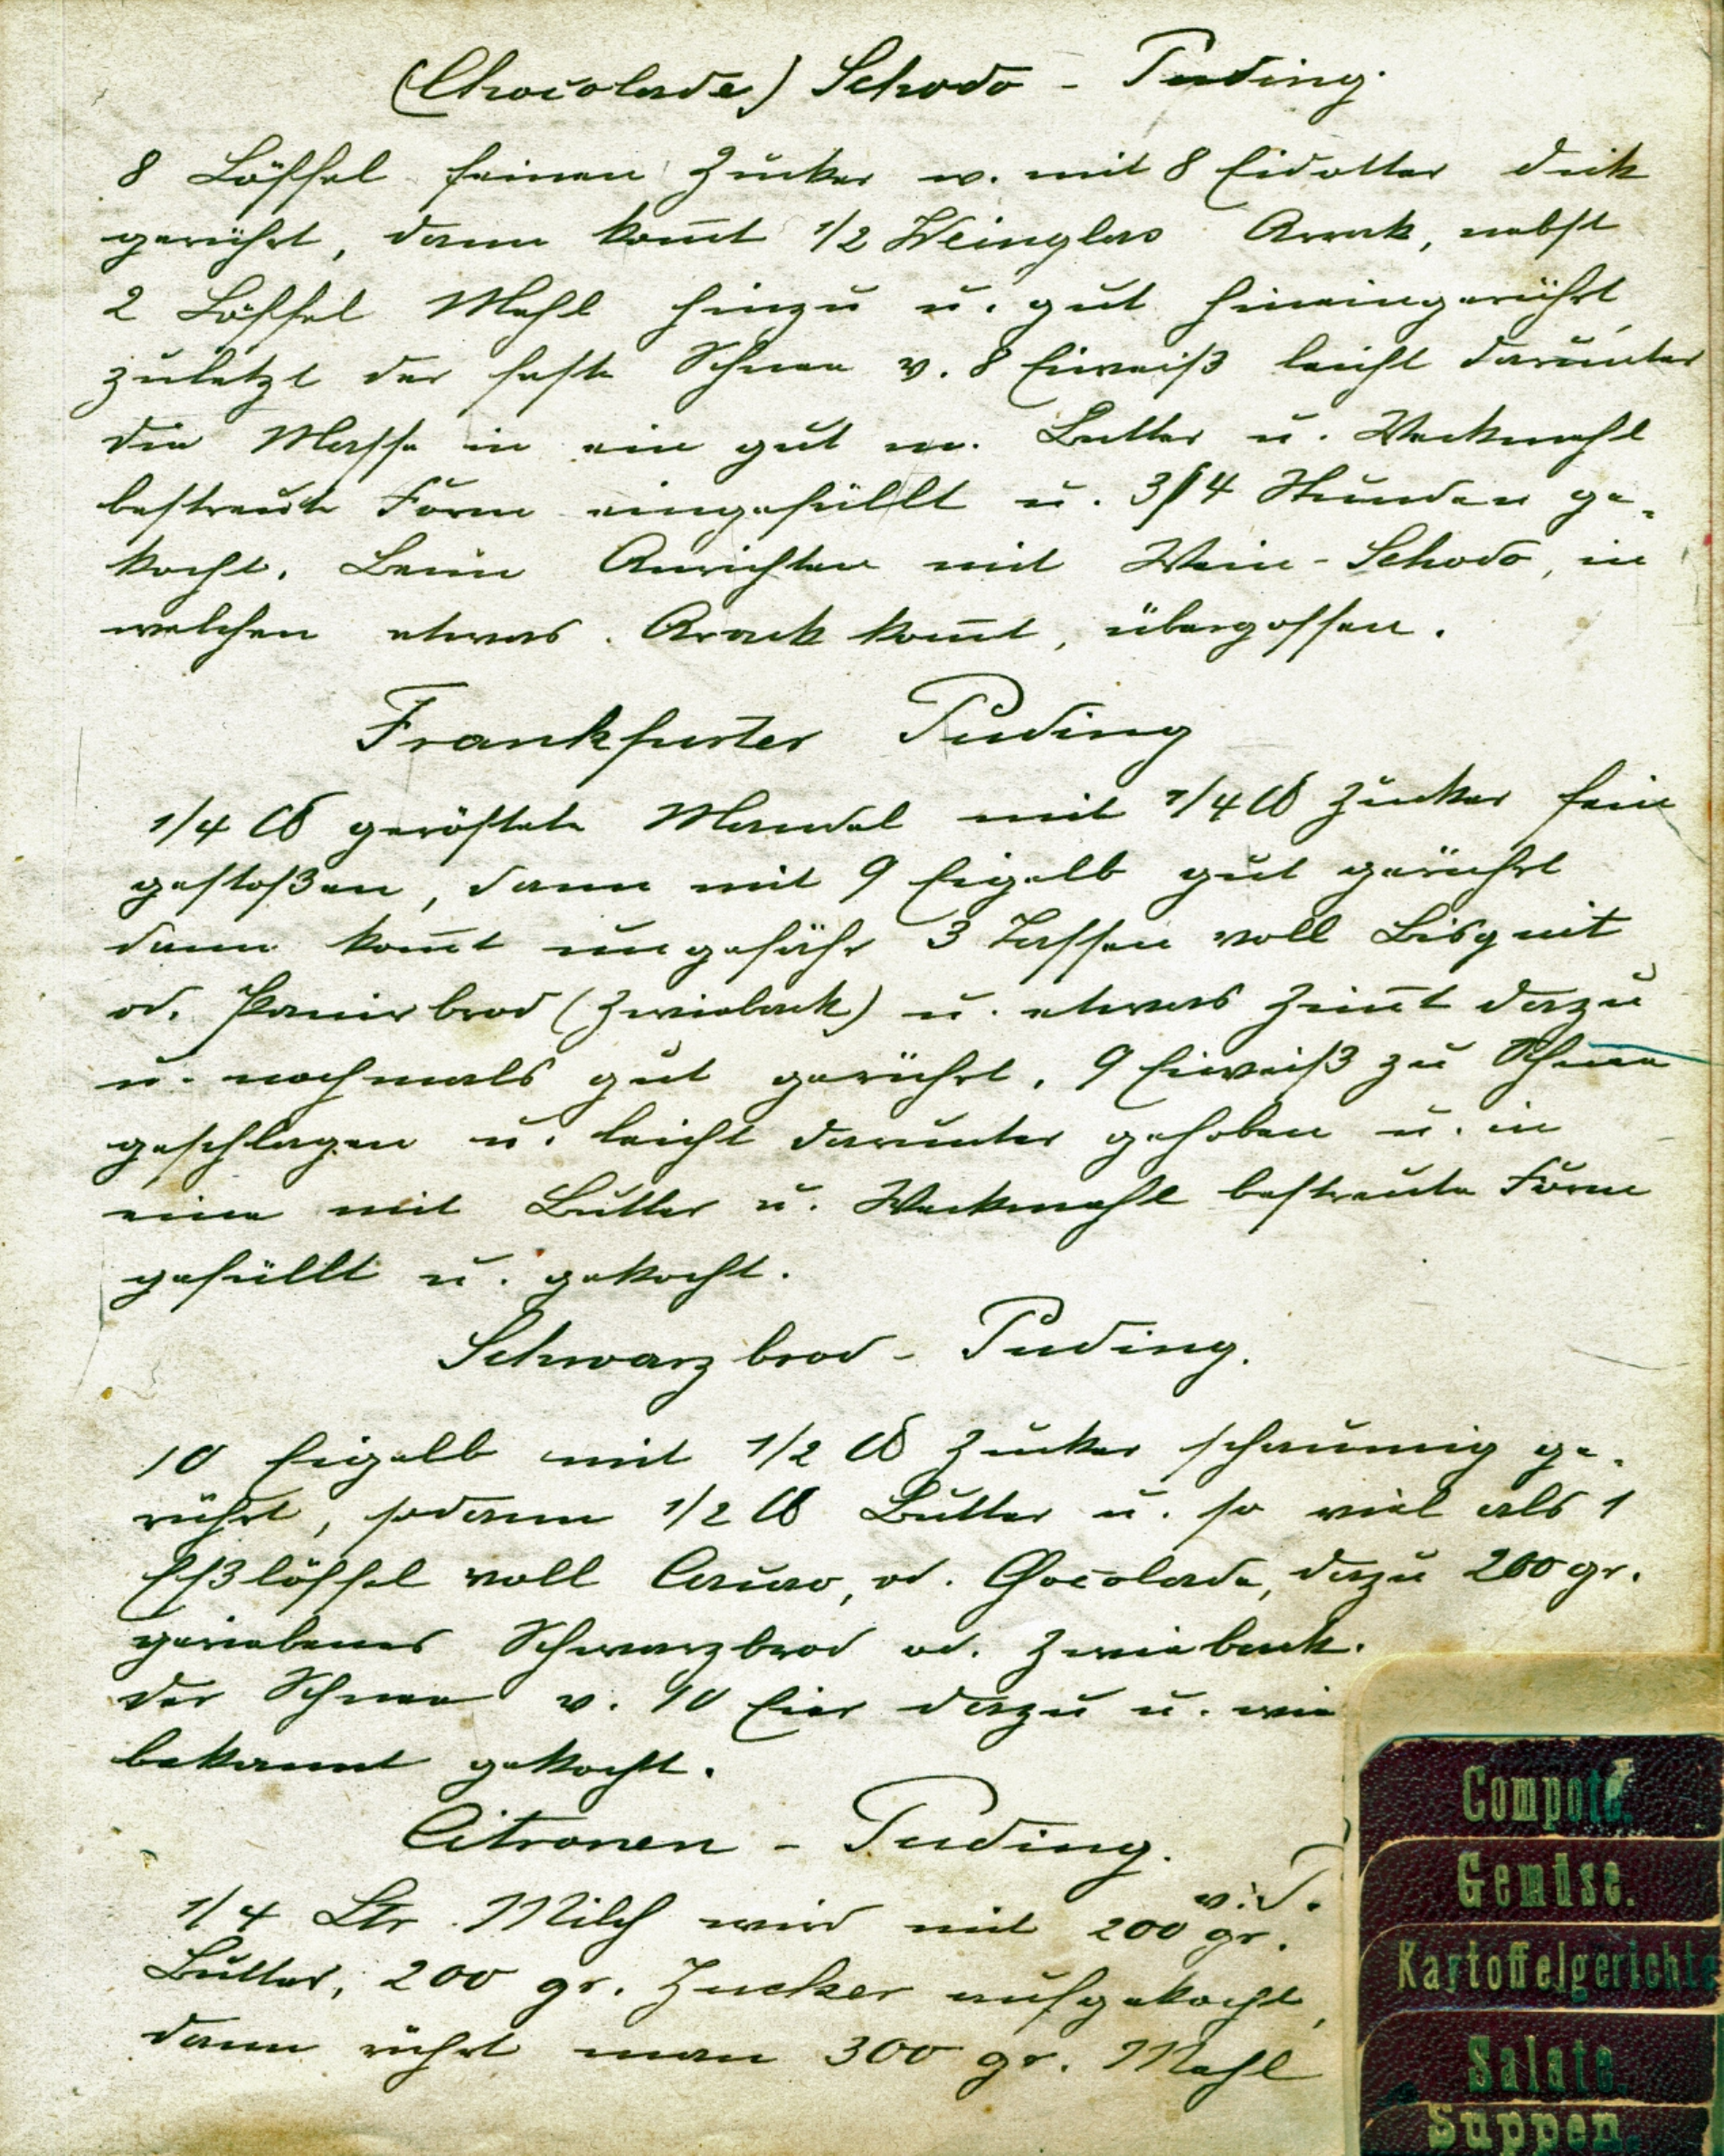 (Chocolade) Schodo - Puding.
8 Löffel feinen Zucker w. mit 8 Eidotter dick
gerührt, dann kom̅t 1/2 Weinglas Arrak, nebst
2 Löffel Mehl hinzu u. gut hineingerührt,
zuletzt der feste Schnee v. 8 Eiweiß leicht darunter
die Masse in ein gut m. Butter u. Weckmehl
bestreute Form eingefüllt u. 3/4 Stunden ge-
kocht. Beim Anrichten mit Wein-Schodo, in
welchen etwas Arack kom̅t, übergossen.
Frankfurter Puding
1/4 ℔ geröstete Mandel mit 1/4 ℔ Zucker fein
gestoßen, dann mit 9 Eigelb gut gerührt
dann kom̅t ungefähr 3 Tassen voll Bisquit
od. Panierbrod (Zwieback) u. etwas Zim̅t dazu
u. nochmals gut gerührt, 9 Eiweiß zu Schnee
geschlagen u. leicht darunter gehoben u. in
eine mit Butter u. Weckmehl bestreute Form
gefüllt u. gekocht.
Schwarzbrod - Puding.
10 Eigelb mit 1/2 ℔ Zucker schaumig ge-
rührt, sodann 1/2 ℔ Butter u. so viel als 1
Eßlöffel voll Cacao, od. Chocolade, dazu 200 gr.
geriebenes Schwarzbrod od. Zwieback.
der Schnee v. 10 Eier dazu u. wie
bekannt gekocht.
Citronen - Puding.
1/4 Ltr. Milch wird mit 200 gr.
Butter, 200 gr. Zucker aufgekocht,
dann rührt man 300 gr. Mehl
Compote.
Gemüse.
Kartoffelgerichte
Salate.
Suppen.